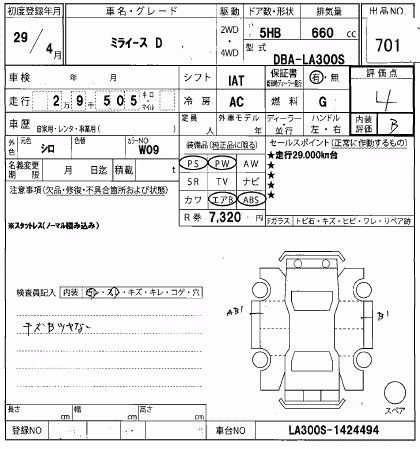 初度登録年月
29 / 4月
車名・グレード
ミライース D
駆動
2WD
・
4WD
ドア数・形状
5HB
排気量
660 cc
型式
DBA-LA300S
出品NO
701
車検 年 月
シフト IAT
保証書 有・無
評価点
4
走行 2万9千505 キロ・マイル
冷房 AC
燃料 G
車歴 自家用・レンタ・事業用( )
定員 人
外車モデル 年
ディーラー・並行
ハンドル
左・右
内装評価 B
外色 元色 シロ
色替
カラーNO W09
装備品(純正品に限る)
セールスポイント(正常に作動するもの)
名義変更期限 月 日迄
積載 t
PS PW AW
★走行29.000km台
★
★
★
★
注意事項(欠品・修復・不具合箇所および状態)
SR TV ナビ
カワ エアB ABS
※スタットレス(ノーマル積み込み)
R券 7,320 円
Fガラス トビ石・キズ・ヒビ・ワレ・リペア跡
検査員記入 内装 キズ・キレ・コゲ・穴
AB1
B1
スペア
長さ cm
幅 cm
高さ cm
登録NO
車台NO LA300S-1424494